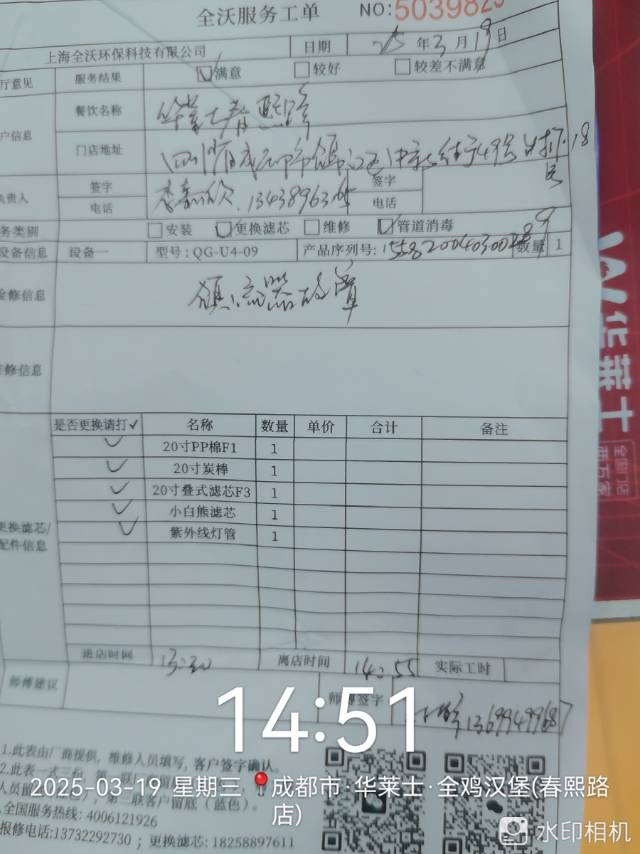 全沃服务工单 NO:5039825
上海全沃环保科技有限公司 日期 25年3月19日
厅意见 服务结果 满意 较好 较差不满意
户信息 餐饮名称 华莱士春熙路
门店地址 四川省成都市锦江区
负责人 签字 签字
电话 电话
务类别 安装 更换滤芯 维修 管道消毒
设备信息 设备一 型号:QG-U4-09 产品序列号: 数量 1
检修信息
维修信息
是否更换请打✓ 名称 数量 单价 合计 备注
✓ 20寸PP棉F1 1
✓ 20寸炭棒 1
✓ 20寸叠式滤芯F3 1
✓ 小白熊滤芯 1
更换滤芯/ ✓ 紫外线灯管 1
配件信息
进店时间 13:30 离店时间 14:55 实际工时
师傅建议 师傅签字 13699499687
14:51
1.此表由厂商提供,维修人员填写,客户签字确认。
2.此表一
2025-03-19 星期三 成都市·华莱士·全鸡汉堡(春熙路店)
第三联客户留底(蓝色)。
全国服务热线: 4006121926
报修电话:13732292730 ; 更换滤芯: 18258897611
水印相机
华莱士
全国门店
两万家